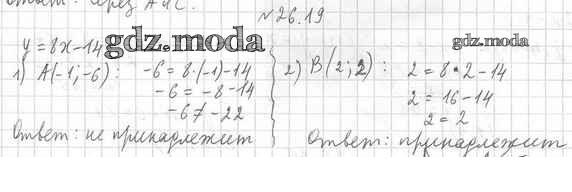 Ответ: через А и С.
№ 26.19
y = 8x - 14
gdz.moda
gdz.moda
1) A(-1; -6): -6 = 8·(-1) - 14
-6 = -8 - 14
-6 ≠ -22
Ответ: не принадлежит
2) B(2; 2): 2 = 8·2 - 14
2 = 16 - 14
2 = 2
Ответ: принадлежит